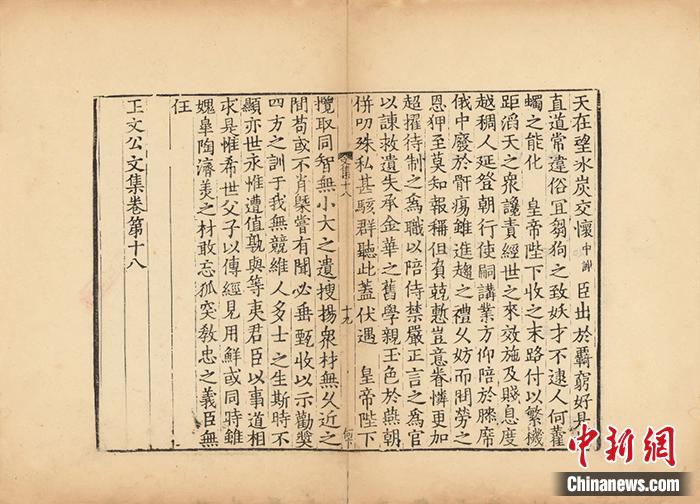 天在望氷炭交懷中謝臣出於覊窮好是
直道常違俗宜芻狗之致妖才不逮人何藿
蠋之能化 皇帝陛下收之末路付以繁機
距滔天之衆讒責經世之來效施及賤息度
越稠人延登朝行使嗣講業方仰陪於塍席
俄中廢於骭瘍雖進趨之禮久妨而問勞之
恩狎至莫知報稱但負兢慙豈意眷憐更加
超擢待制之爲職以陪侍禁嚴正言之爲官
以諫救遺失承金華之舊學親玉色於燕朝
併叨殊私甚駭群聽此蓋伏遇 皇帝陛下
文集十八
十九
攬取同智無小大之遺搜揚衆材無久近之
間苟或不肖槩嘗有聞必垂甄收以示勸奬
四方之訓于我無競維人多士之生斯時不
顯亦世永惟遭值孰與等夷君臣以事道相
求是惟希世父子以傳經見用鮮或同時雖
媿皐陶濟羙之材敢忘狐突敎忠之義臣無
任
王文公文集卷第十八
中新网
Chinanews.com